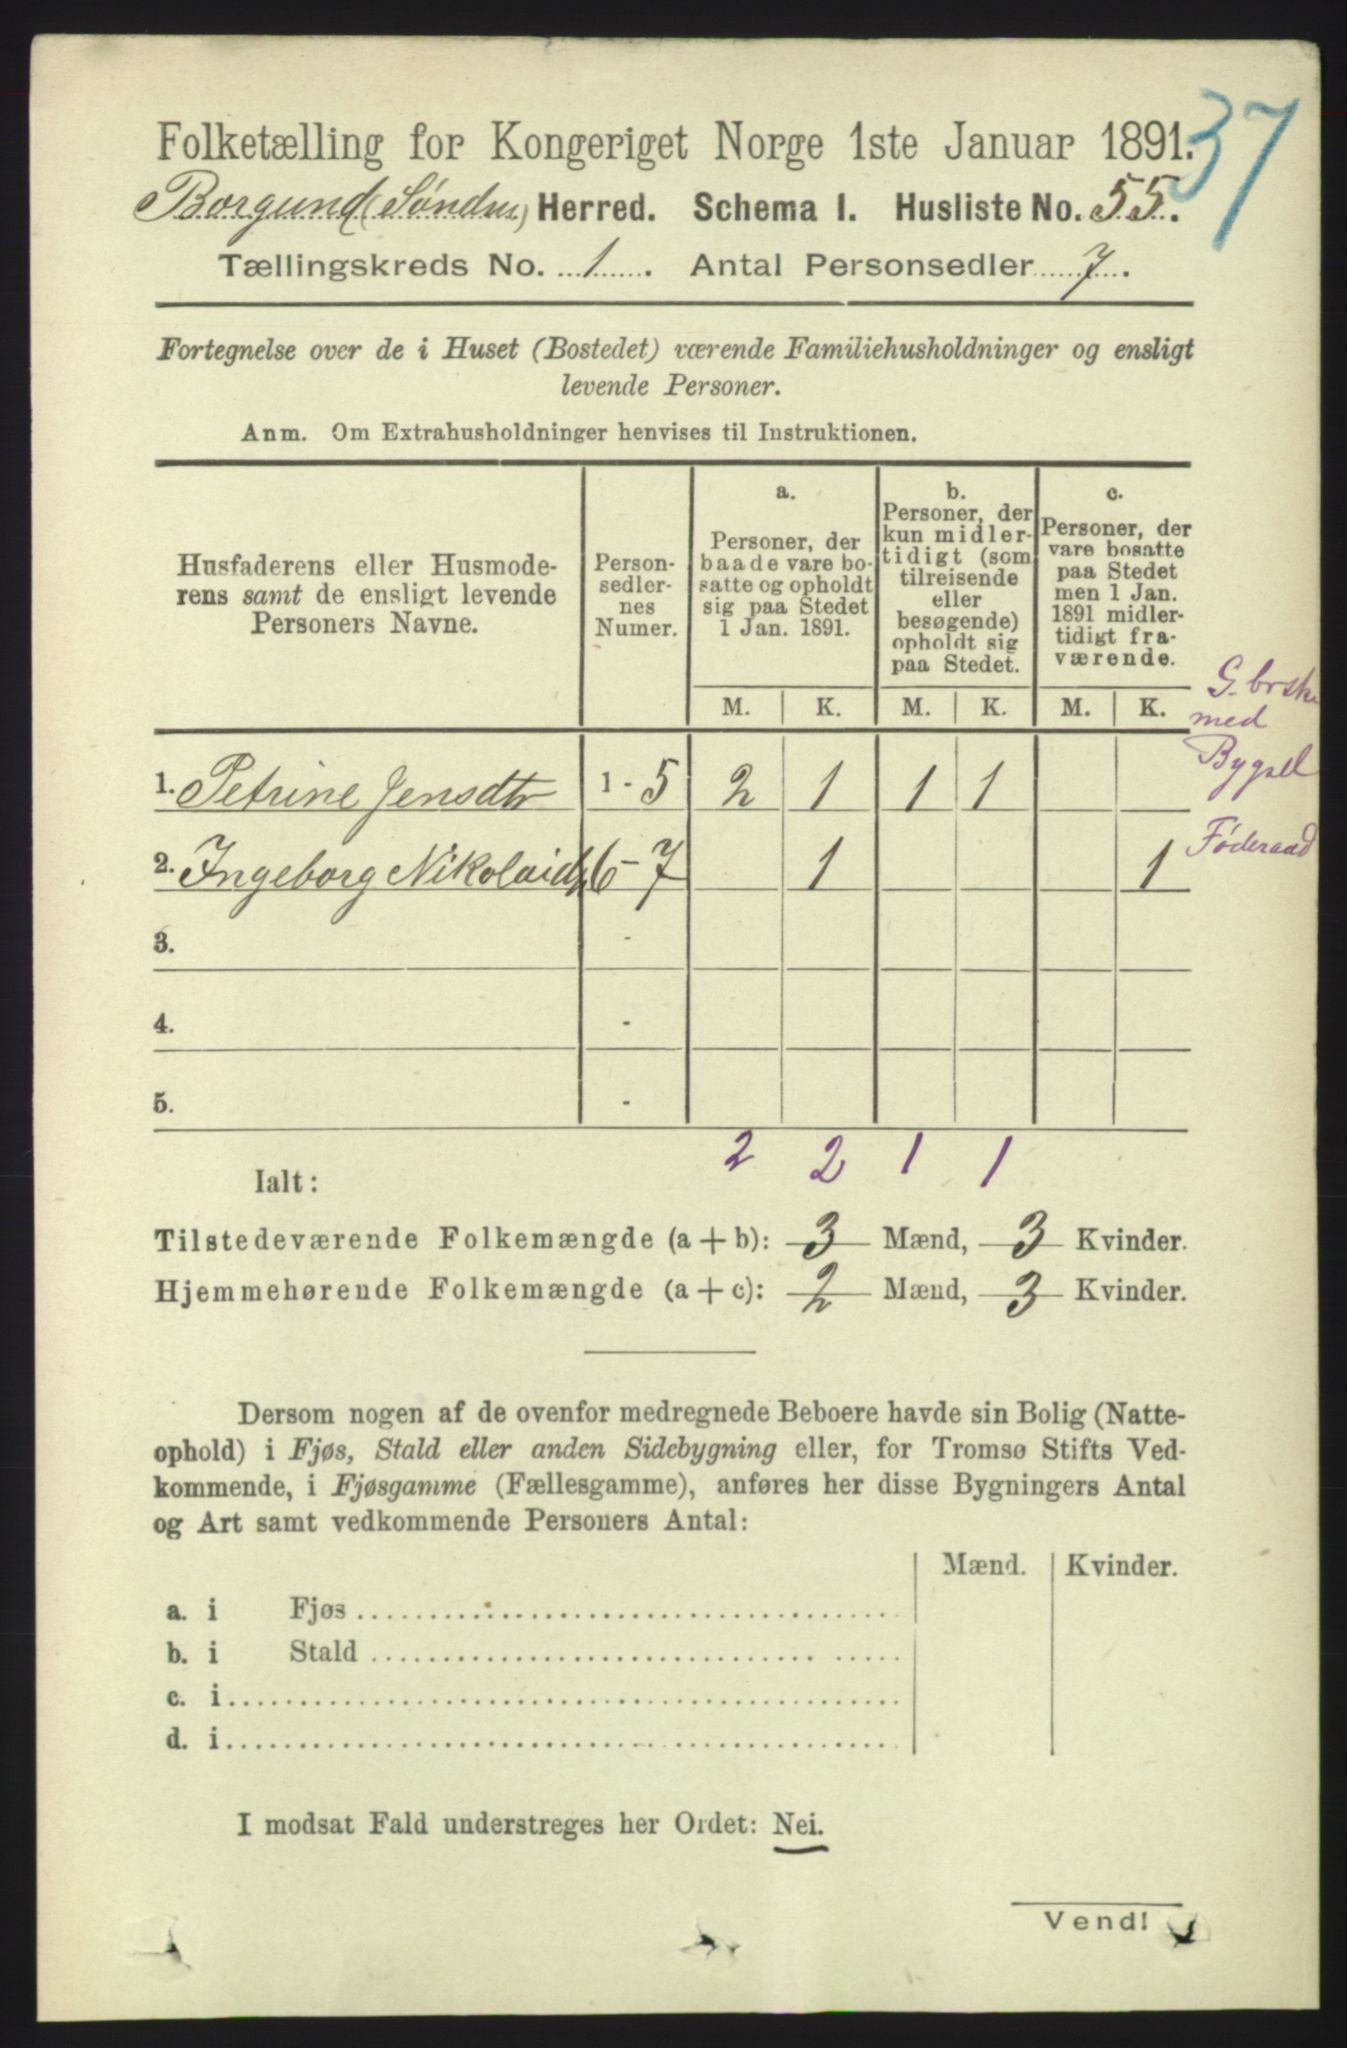 37
Folketælling for Kongeriget Norge 1ste Januar 1891.
Borgund (Søndre) Herred. Schema I. Husliste No. 55.
Tællingskreds No. 1. Antal Personsedler 7.
Fortegnelse over de i Huset (Bostedet) værende Familiehusholdninger og ensligt
levende Personer.
Anm. Om Extrahusholdninger henvises til Instruktionen.
Husfaderens eller Husmode-
rens samt de ensligt levende
Personers Navne.
Person-
sedler-
nes
Numer.
a.
Personer, der
baade vare bo-
satte og opholdt
sig paa Stedet
1 Jan. 1891.
b.
Personer, der
kun midler-
tidigt (som
tilreisende
eller
besøgende)
opholdt sig
paa Stedet.
c.
Personer, der
vare bosatte
paa Stedet
men 1 Jan.
1891 midler-
tidigt fra-
værende.
M. K. M. K. M. K.
G.brsk.
med
Bygsel
1. Petrine Jensdtr 1 - 5 2 1 1 1
Føderaad
2. Ingeborg Nikolaidtr 6 - 7 1 1
3. -
4. -
5. -
2 2 1 1
Ialt:
Tilstedeværende Folkemængde (a + b): 3 Mænd, 3 Kvinder.
Hjemmehørende Folkemængde (a + c): 2 Mænd, 3 Kvinder.
Dersom nogen af de ovenfor medregnede Beboere havde sin Bolig (Natte-
ophold) i Fjøs, Stald eller anden Sidebygning eller, for Tromsø Stifts Ved-
kommende, i Fjøsgamme (Fællesgamme), anføres her disse Bygningers Antal
og Art samt vedkommende Personers Antal:
Mænd. Kvinder.
a. i Fjøs
b. i Stald
c. i
d. i
I modsat Fald understreges her Ordet: Nei.
Vend!